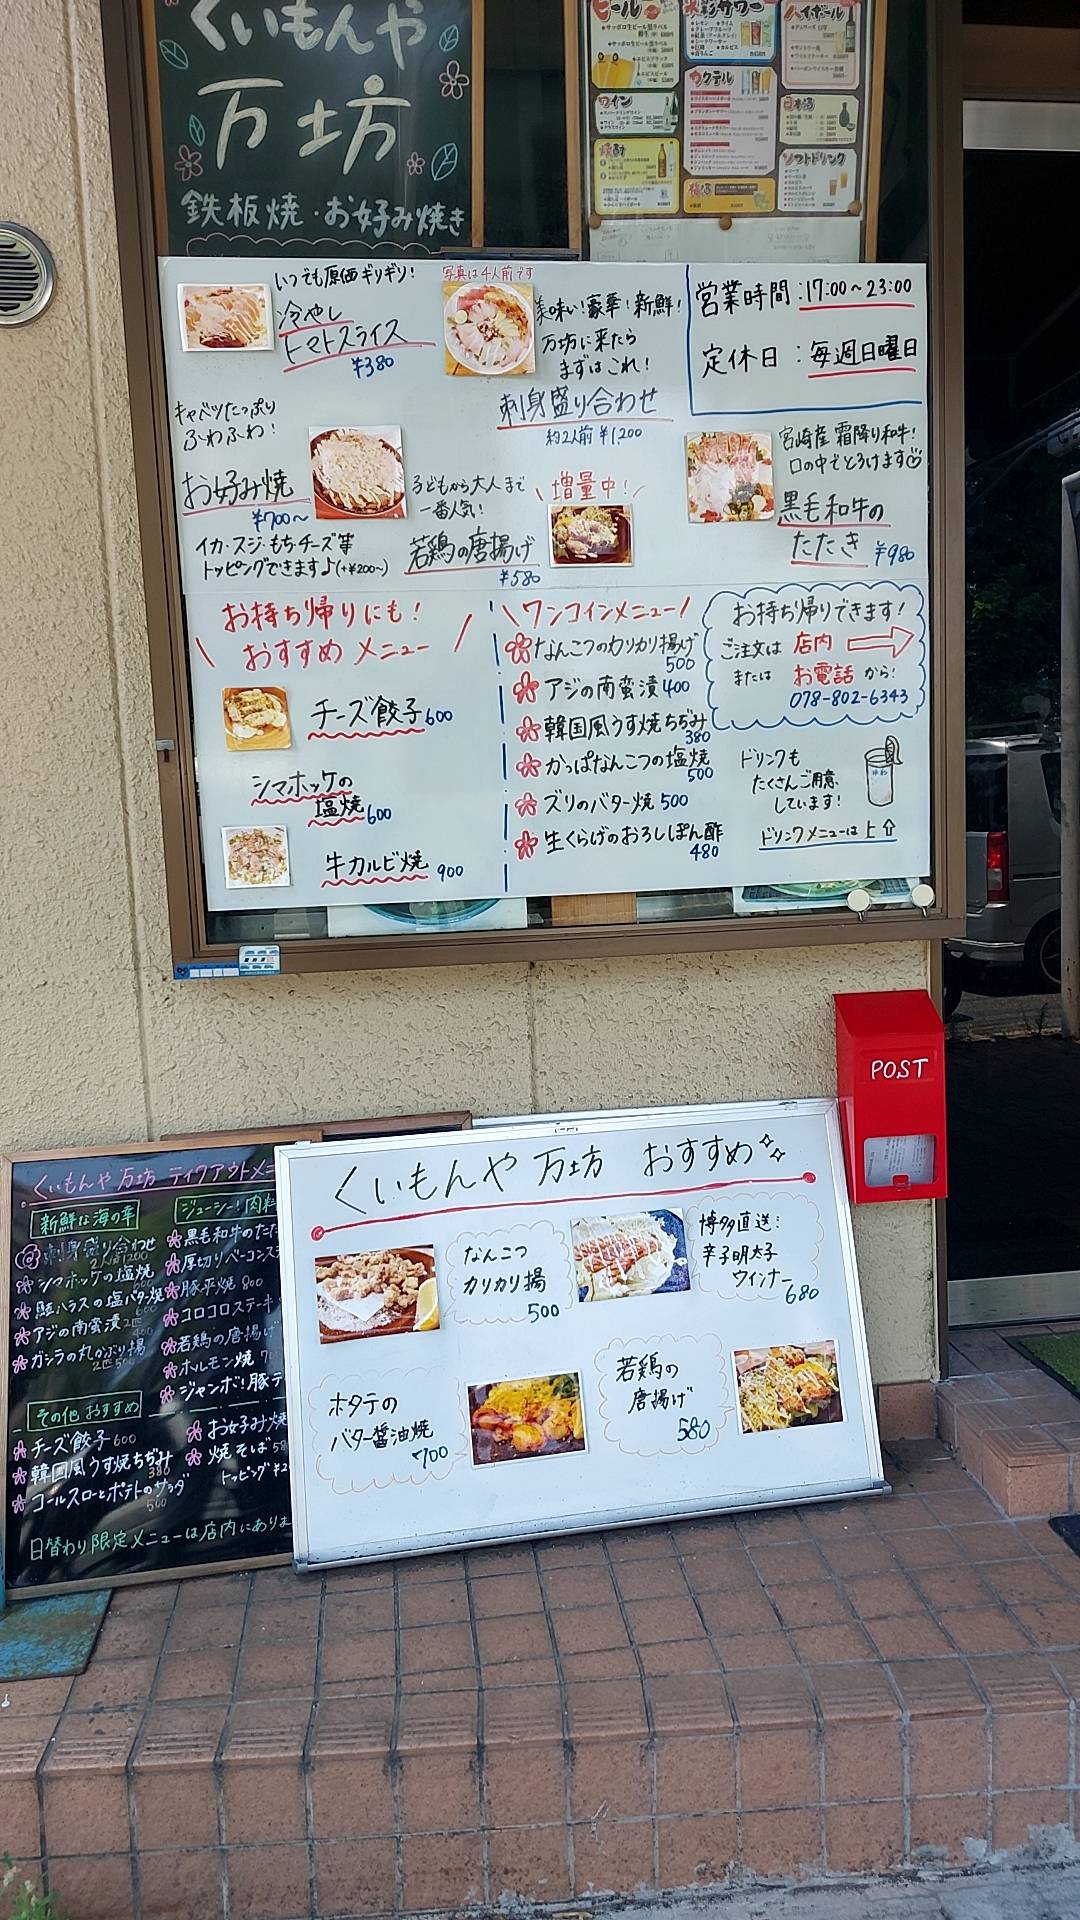 くいもんや
万坊
鉄板焼・お好み焼き
ビール
ハイボール
カクテル
ワイン
日本酒
焼酎
ソフトドリンク
いつでも原価ギリギリ!
冷やし
トマトスライス
¥380
写真は4人前です
美味い!豪華!新鮮!
万坊に来たら
まずはこれ!
刺身盛り合わせ
約2人前 ¥1,200
営業時間:17:00~23:00
定休日:毎週日曜日
キャベツたっぷり
ふわふわ!
お好み焼
¥700~
イカ・スジ・もち・チーズ等
トッピングできます♪(+¥200~)
子どもから大人まで
一番人気!
\増量中!/
若鶏の唐揚げ
¥580
宮崎産 霜降り和牛!
口の中でとろけます
黒毛和牛の
たたき ¥980
お持ち帰りにも!
\おすすめメニュー/
チーズ餃子 600
シマホッケの
塩焼 600
牛カルビ焼 900
\ワンコインメニュー/
なんこつのカリカリ揚げ
500
アジの南蛮漬 400
韓国風うす焼ちぢみ
380
かっぱなんこつの塩焼
500
ズリのバター焼 500
生くらげのおろしぽん酢
480
お持ち帰りできます!
ご注文は 店内
または お電話 から!
078-802-6343
ドリンクも
たくさんご用意
しています!
ドリンクメニューは上⇧
POST
くいもんや 万坊 テイクアウトメニ
新鮮な海の幸
刺身盛り合わせ
2人前1200
シマホッケの塩焼
600
鮭ハラスの塩バター焼
600
アジの南蛮漬 2匹
400
ガシラの丸かぶり揚
2匹500
その他おすすめ
チーズ餃子 600
韓国風うす焼ちぢみ
380
コールスローとポテトのサラダ
500
ジューシー!肉料
黒毛和牛のたた
厚切りベーコンス
豚平焼 800
コロコロステーキ
若鶏の唐揚げ
ホルモン焼 7
ジャンボ!豚テ
お好み焼
焼そば 58
トッピング ¥2
日替わり限定メニューは店内にありま
くいもんや 万坊 おすすめ
なんこつ
カリカリ揚
500
博多直送!
辛子明太子
ウインナー
680
ホタテの
バター醤油焼
700
若鶏の
唐揚げ
580